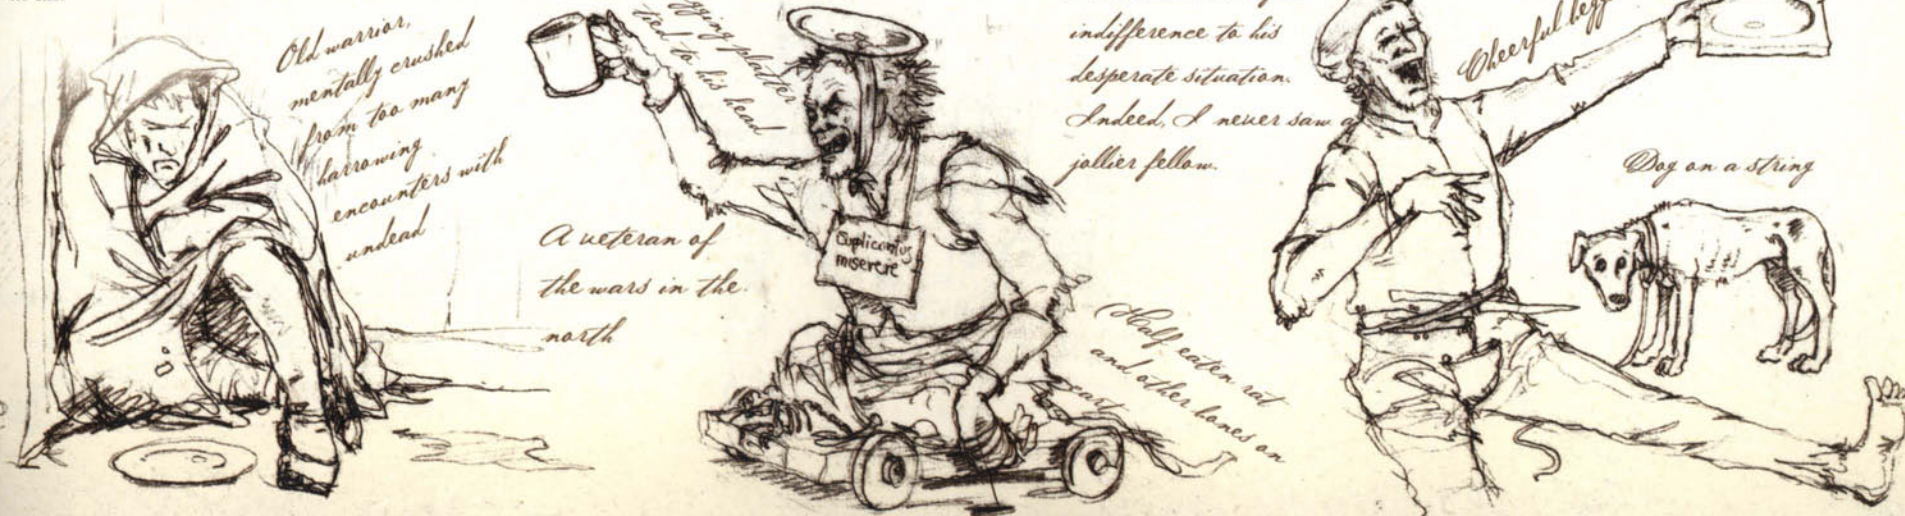 Old warrior,
mentally crushed
from too many
harrowing
encounters with
undead
gging platter
tied to his head
A veteran of
the wars in the
north
Suplicantus
miserere
indifference to his
desperate situation.
Indeed, I never saw a
jollier fellow.
Half eaten rat
and other bones on
cart
Cheerful begg
Dog on a string